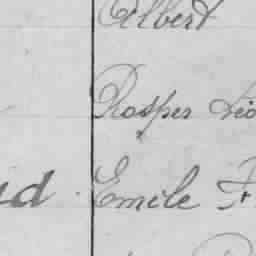 Albert
Prosper Léo
ud Emile F